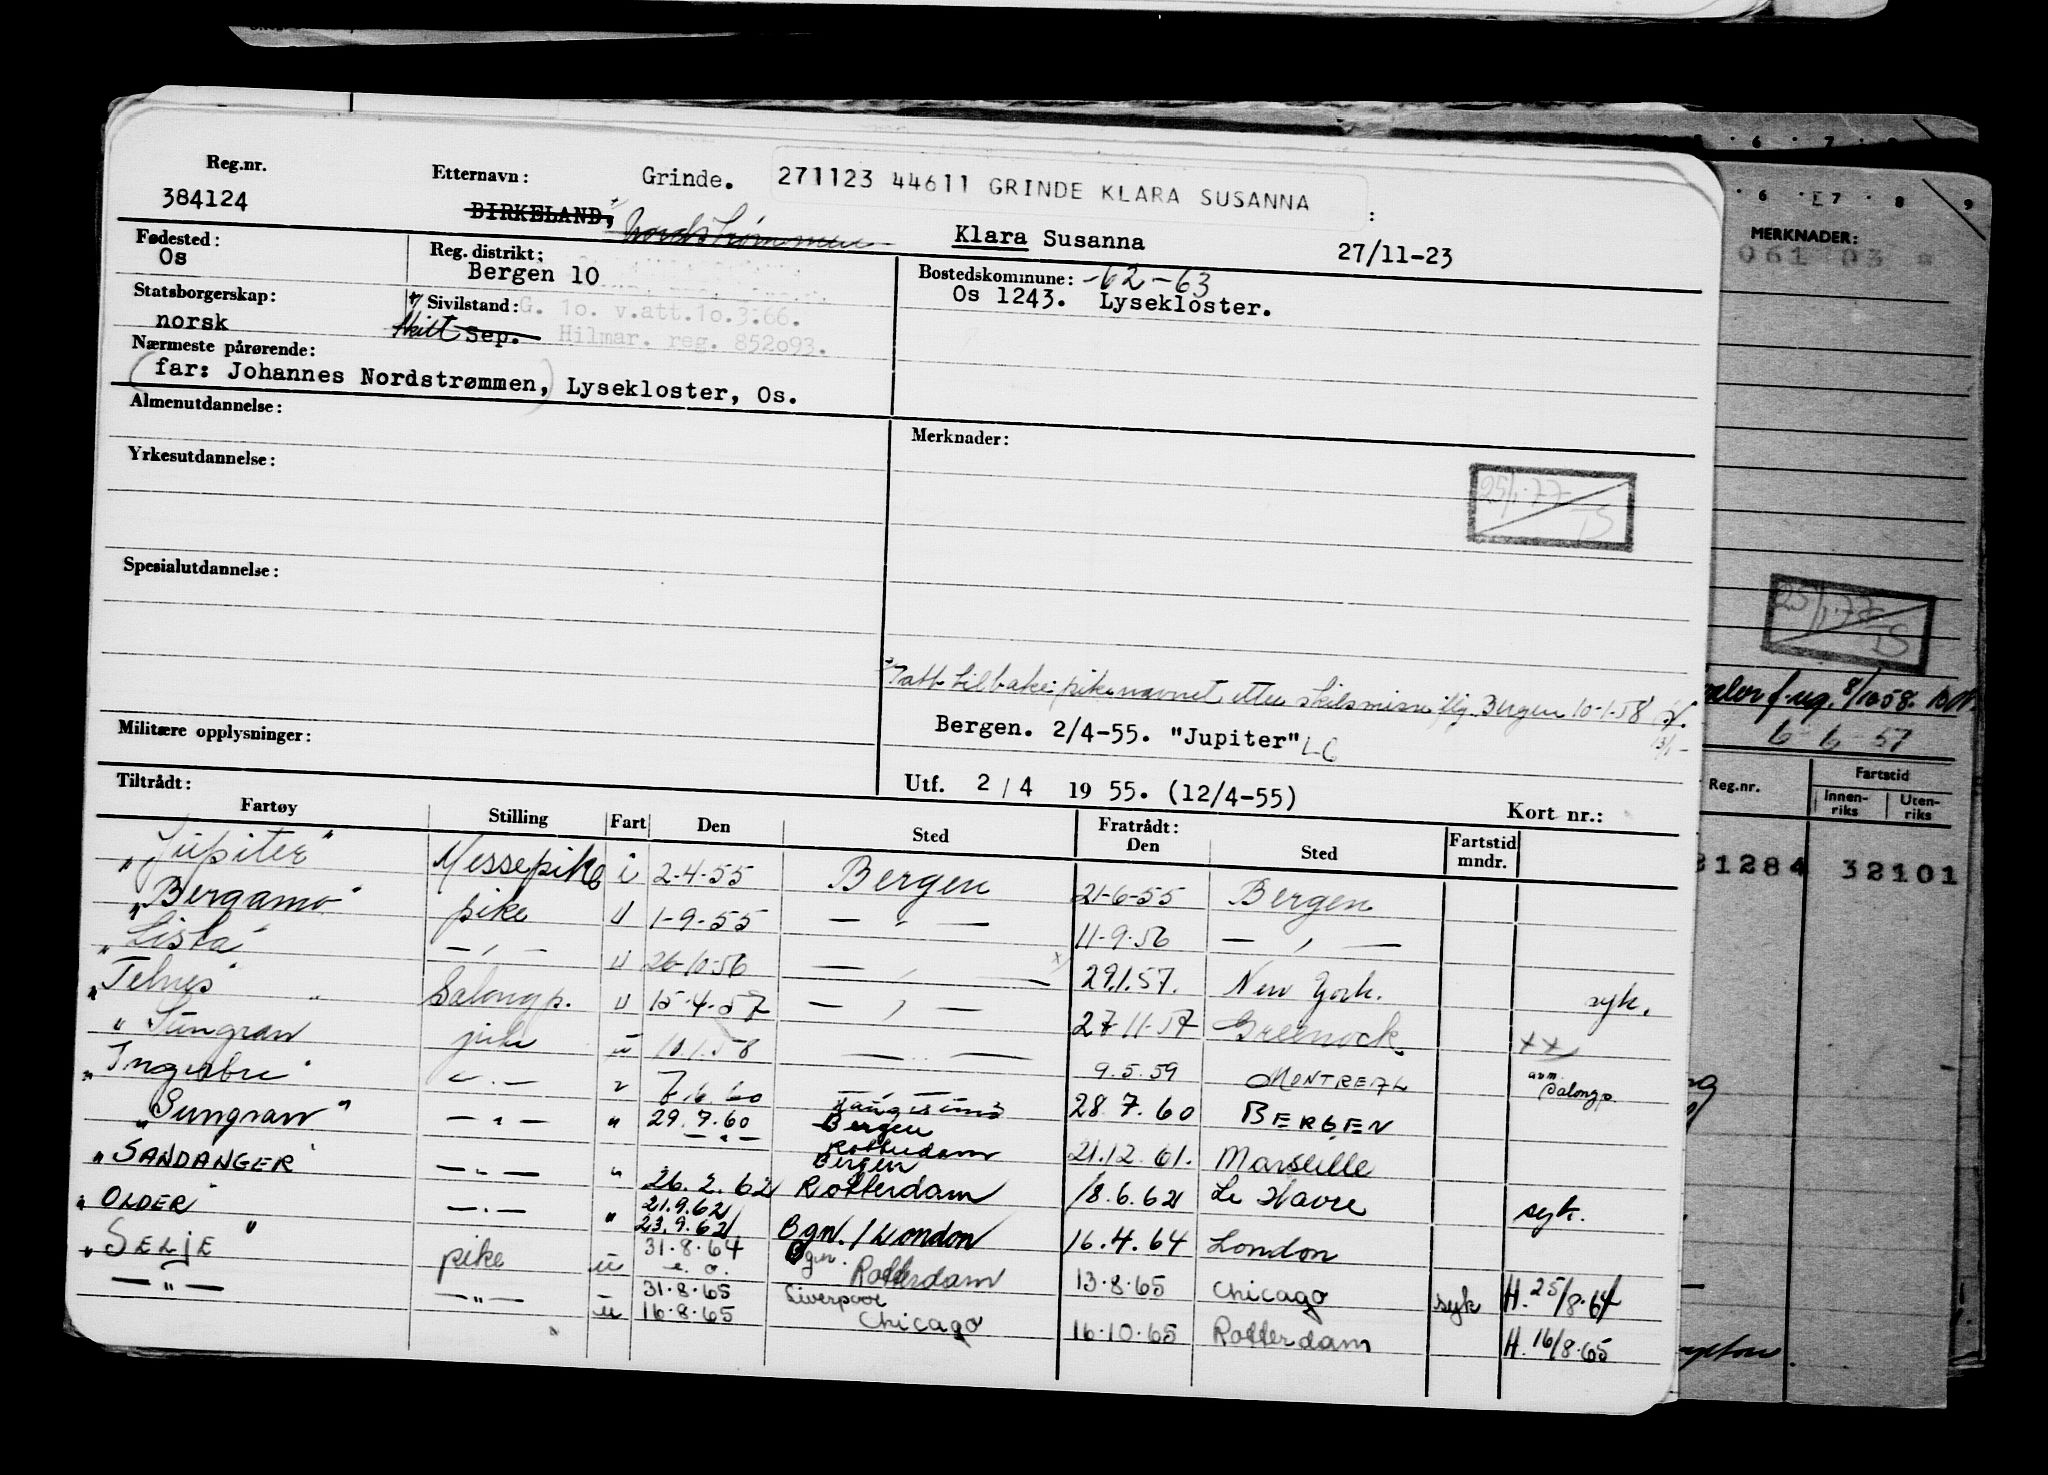 Reg.nr. Etternavn: Grinde. 271123 44611 GRINDE KLARA SUSANNA :
384124 BIRKELAND, Nordstrømmen Klara Susanna 27/11-23
Fødested: Reg. distrikt: Bostedskommune: -62-63
Os Bergen 10 Os 1243. Lysekloster.
Statsborgerskap: Sivilstand: G. 10. v.att.10.3.66.
norsk skilt Sep. Hilmar. reg. 852093.
Nærmeste pårørende:
(far: Johannes Nordstrømmen,) Lysekloster, Os.
Almenutdannelse: Merknader:
Yrkesutdannelse:
25/1.77 TS
Spesialutdannelse:
Tatt tilbake pikenavnet etter skilsmisse iflg. Bergen 10-1-58
Militære opplysninger: Bergen. 2/4-55. "Jupiter" LC
Utf. 2/4 1955. (12/4-55) Kort nr.:
Tiltrådt: Fratrådt:
Fartøy Stilling Fart Den Sted Den Sted Fartstid mndr.
"Jupiter" Messepike i 2-4-55 Bergen 21-6-55 Bergen
"Bergamo" pike u 1-9-55 — " — 11-9-56 — " —
"Lista" — " — u 26-10-56 — " — x) 29.1.57. New York. syk.
"Telnes" Salongp. u 15-4-57 — " — 27-11-57 Greenock.
"Sungran pike u 10.1.58 — " — 9.5.59 MONTREAL xx) avm. Salongp.
"Ingerbre" — " — " 7.6.60 28.7.60 BERGEN
"Sungran" — " — " 29.7.60 — " — Bergen Rotterdam 21.12.61. Marseille
"SANDANGER" — " — " 26.2.62 Bergen Rotterdam 18.6.62 Le Havre syk.
"OLDER" — " — " 21.9.62 23.9.62 Bgn. / London 16.4.64 London
"SELJE" pike u 31.8.64 Bgn. Rotterdam 13.8.65 Chicago syk H. 25/8.64
— " — — " — u 31.8.65 16.8.65 Liverpool Chicago 16.10.65 Rotterdam H. 16/8.65
6 7 8
6 7 8 9
MERKNADER:
061 03
25/1.77 TS
f. reg. 8/10 58.
6-6-57
Reg.nr. Fartstid
Innenriks Utenriks
31284 32101